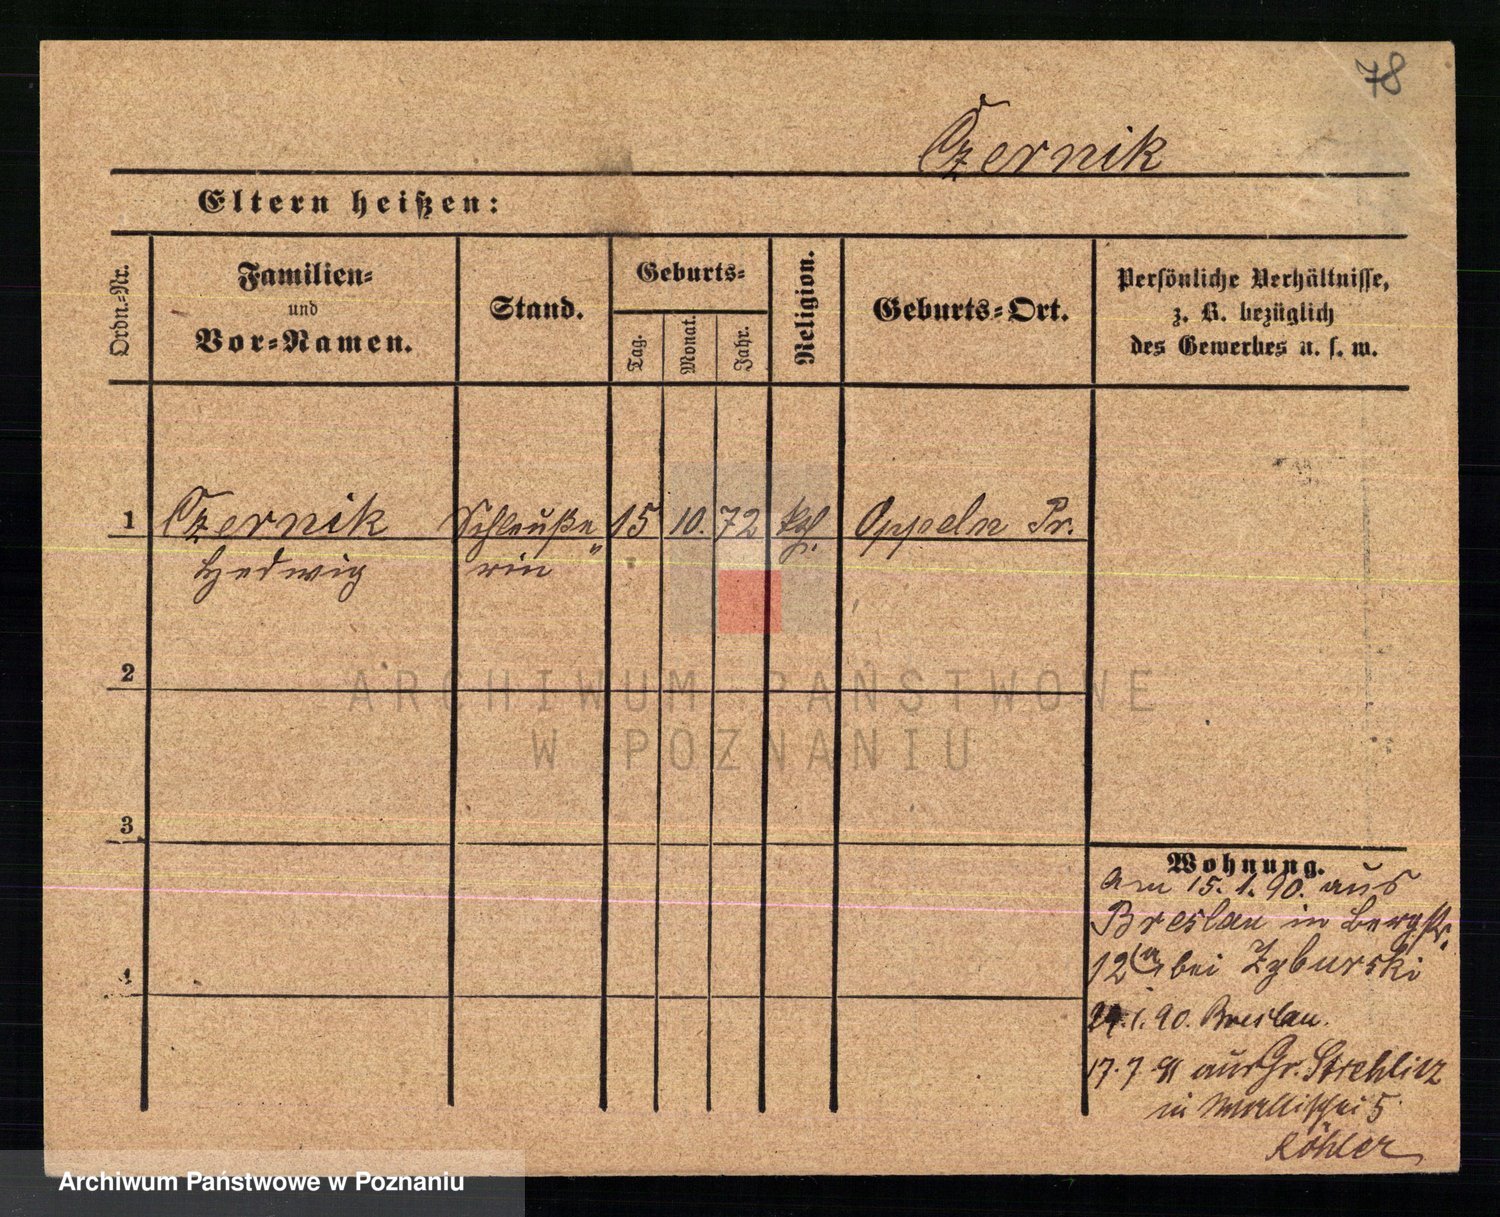 78
Czernik
Eltern heißen:
Ordn.=Nr.
Familien=
und
Vor=Namen.
Stand.
Geburts=
Tag.
Monat.
Jahr.
Religion.
Geburts=Ort.
Persönliche Verhältnisse,
z. B. bezüglich
des Gewerbes u. s. w.
1 Czernik Schleuße 15 10. 72 kth. Oppeln Pr.
Hedwig rin
2
3
4
Wohnung.
am 15. 1. 90. aus
Breslau in Bergstr.
12a bei Zyburski
1. 90. Breslau.
17. 7 91 aus Gr. Strehlitz
in Wallischei 5
Köhler
ARCHIWUM PAŃSTWOWE
W POZNANIU
Archiwum Państwowe w Poznaniu